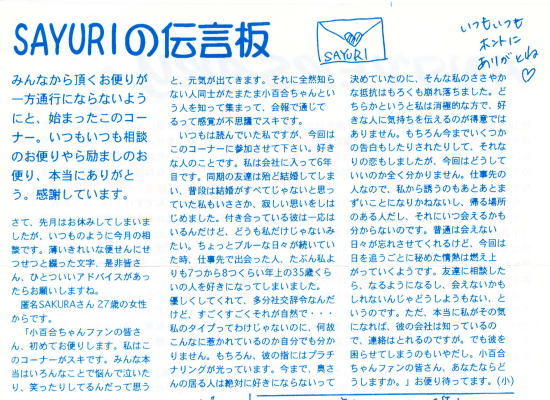 SAYURIの伝言板
SAYURI
いつもいつも
ホントに
ありがとね
みんなから頂くお便りが
一方通行にならないよう
にと、始まったこのコー
ナー。いつもいつも相談
のお便りやら励ましのお
便り、本当にありがと
う。感謝しています。
さて、先月はお休みしてしまいま
したが、いつものように今月の相
談です。薄いきれいな便せんにせ
つせつと綴った文字、是非皆さ
ん、ひとついいアドバイスがあっ
たらお願いしますね。
匿名SAKURAさん 27歳の女性
からです。
「小百合ちゃんファンの皆さ
ん、初めてお便りします。私はこ
のコーナーがスキです。みんな本
当はいろんなことで悩んで泣いた
り、笑ったりしてるんだって思う
と、元気が出てきます。それに全然知ら
ない人同士がたまたま小百合ちゃんとい
う人を知って集まって、会報で通じて
るって感覚が不思議でスキです。
いつもは読んでいた私ですが、今回は
このコーナーに参加させて下さい。好き
な人のことです。私は会社に入って6年
目です。同期の友達は殆ど結婚してしま
い、普段は結婚がすべてじゃないと思っ
ていた私もいささか、寂しい思いをしは
じめました。付き合っている彼は一応は
いるんだけど、どうも私だけじゃないみ
たい。ちょっとブルーな日々が続いてい
た時、仕事先で出会った人、たぶん私よ
りも7つから8つくらい年上の35歳くら
いの人を好きになってしまいました。
優しくしてくれて、多分社交辞令なんだ
けど、すごくすごくそれが自然で・・・
私のタイプってわけじゃないのに、何故
こんなに惹かれているのか自分でも分か
りません。もちろん、彼の指にはプラチ
ナリングが光っています。今まで、奥さ
んの居る人は絶対に好きにならないって
決めていたのに、そんな私のささやか
な抵抗はもろくも崩れ落ちました。ど
ちらかというと私は消極的な方で、好
きな人に気持ちを伝えるのが得意では
ありません。もちろん今までいくつか
の告白もしたりされたりして、それな
りの恋もしましたが、今回はどうして
いいのか全く分かりません。仕事先の
人なので、私から誘うのもあとあとま
ずいことになりかねないし、帰る場所
のある人だし、それにいつ会えるかも
分からないのです。普通は会えない
日々が忘れさせてくれるけど、今回は
日を追うごとに秘めた情熱は燃え上
がっていくようです。友達に相談した
ら、なるようになるし、会えないかも
しれないんじゃどうしようもない、と
いうのです。ただ、本当に私がその気
になれば、彼の会社は知っているの
で、連絡はとれるのですが。でも彼を
困らせてしまうのもいやだし。小百合
ちゃんファンの皆さん、あなたならど
うしますか。」お便り待ってます。(小)